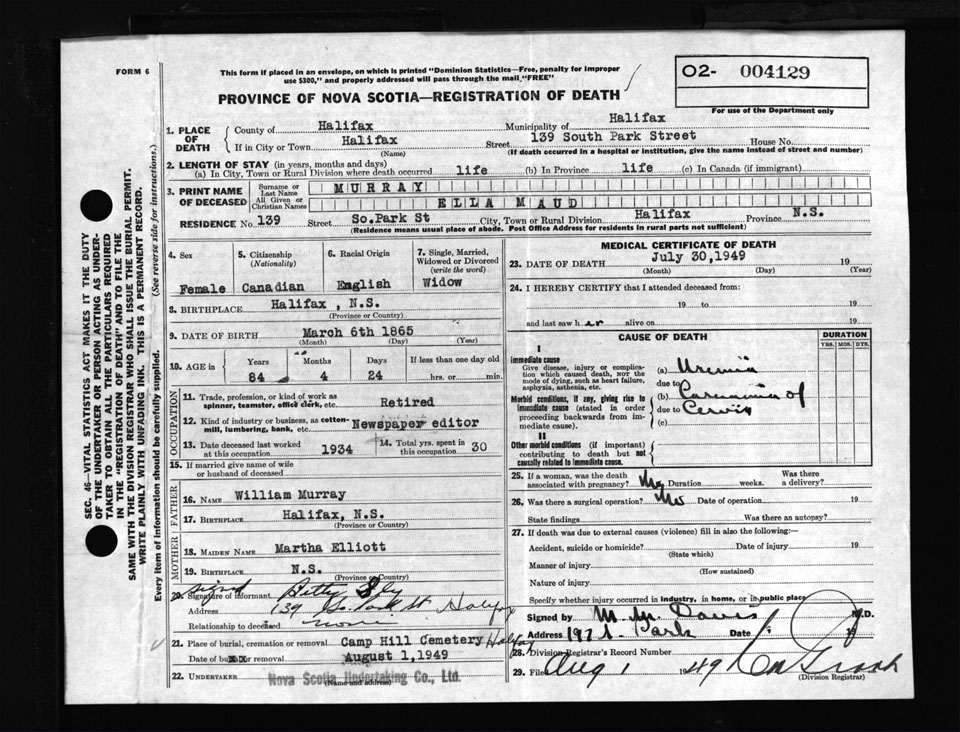 FORM 6
This form if placed in an envelope, on which is printed "Dominion Statistics—Free, penalty for improper
use $300," and properly addressed will pass through the mail "FREE"
O2- 004129
For use of the Department only
PROVINCE OF NOVA SCOTIA—REGISTRATION OF DEATH
SEC. 46—VITAL STATISTICS ACT MAKES IT THE DUTY
OF THE UNDERTAKER OR PERSON ACTING AS UNDER-
TAKER TO OBTAIN ALL THE PARTICULARS REQUIRED
IN THE "REGISTRATION OF DEATH" AND TO FILE THE
SAME WITH THE DIVISION REGISTRAR WHO SHALL ISSUE THE BURIAL PERMIT.
WRITE PLAINLY WITH UNFADING INK. THIS IS A PERMANENT RECORD.
Every item of information should be carefully supplied. (See reverse side for instructions.)
1. PLACE OF DEATH
County of Halifax Municipality of Halifax
If in City or Town Halifax Street 139 South Park Street House No.
(Name) (If death occurred in a hospital or institution, give the name instead of street and number)
2. LENGTH OF STAY (in years, months and days)
(a) In City, Town or Rural Division where death occurred life (b) In Province life (c) In Canada (if immigrant)
3. PRINT NAME OF DECEASED
Surname or Last Name MURRAY
All Given or Christian Names ELLA MAUD
RESIDENCE No. 139 Street So.Park St City, Town or Rural Division Halifax Province N.S.
(Residence means usual place of abode. Post Office Address for residents in rural parts not sufficient)
4. Sex Female
5. Citizenship (Nationality) Canadian
6. Racial Origin English
7. Single, Married, Widowed or Divorced (write the word) Widow
8. BIRTHPLACE Halifax, N.S.
(Province or Country)
9. DATE OF BIRTH March 6th 1865
(Month) (Day) (Year)
10. AGE in Years Months Days If less than one day old
84 4 24 hrs. or min.
OCCUPATION
11. Trade, profession, or kind of work as spinner, teamster, office clerk, etc. Retired
12. Kind of industry or business, as cotton-mill, lumbering, bank, etc. Newspaper editor
13. Date deceased last worked at this occupation 1934
14. Total yrs. spent in this occupation 30
15. If married give name of wife or husband of deceased
FATHER
16. NAME William Murray
17. BIRTHPLACE Halifax, N.S.
(Province or Country)
MOTHER
18. MAIDEN NAME Martha Elliott
19. BIRTHPLACE N.S.
(Province or Country)
signed
20. Signature of informant Betty
Address 139 So. Park St Halifax
Relationship to deceased
21. Place of burial, cremation or removal Camp Hill Cemetery Halifax
Date of burial or removal August 1,1949
22. UNDERTAKER Nova Scotia Undertaking Co., Ltd.
(Name and address)
MEDICAL CERTIFICATE OF DEATH
23. DATE OF DEATH July 30,1949 19
(Month) (Day) (Year)
24. I HEREBY CERTIFY that I attended deceased from:
19 to 19
and last saw h er alive on 19
CAUSE OF DEATH
DURATION
YRS. MOS. DYS.
I
Immediate cause
Give disease, injury or complication which caused death, not the mode of dying, such as heart failure, asphyxia, asthenia, etc.
(a) Uremia
due to
Morbid conditions, if any, giving rise to immediate cause (stated in order proceeding backwards from immediate cause).
(b) Carcinoma of
due to Cervix
(c)
II
Other morbid conditions (if important) contributing to death but not causally related to immediate cause.
25. If a woman, was the death associated with pregnancy? No Duration weeks. Was there a delivery?
26. Was there a surgical operation? No Date of operation 19
State findings Was there an autopsy?
27. If death was due to external causes (violence) fill in also the following:—
Accident, suicide or homicide? Date of injury 19
(State which)
Manner of injury
(How sustained)
Nature of injury
Specify whether injury occurred in industry, in home, or in public place
Signed by M. M. Davis M.D.
Address Park Date 19
28. Division Registrar's Record Number
29. Filed Aug 1 1949
(Division Registrar)